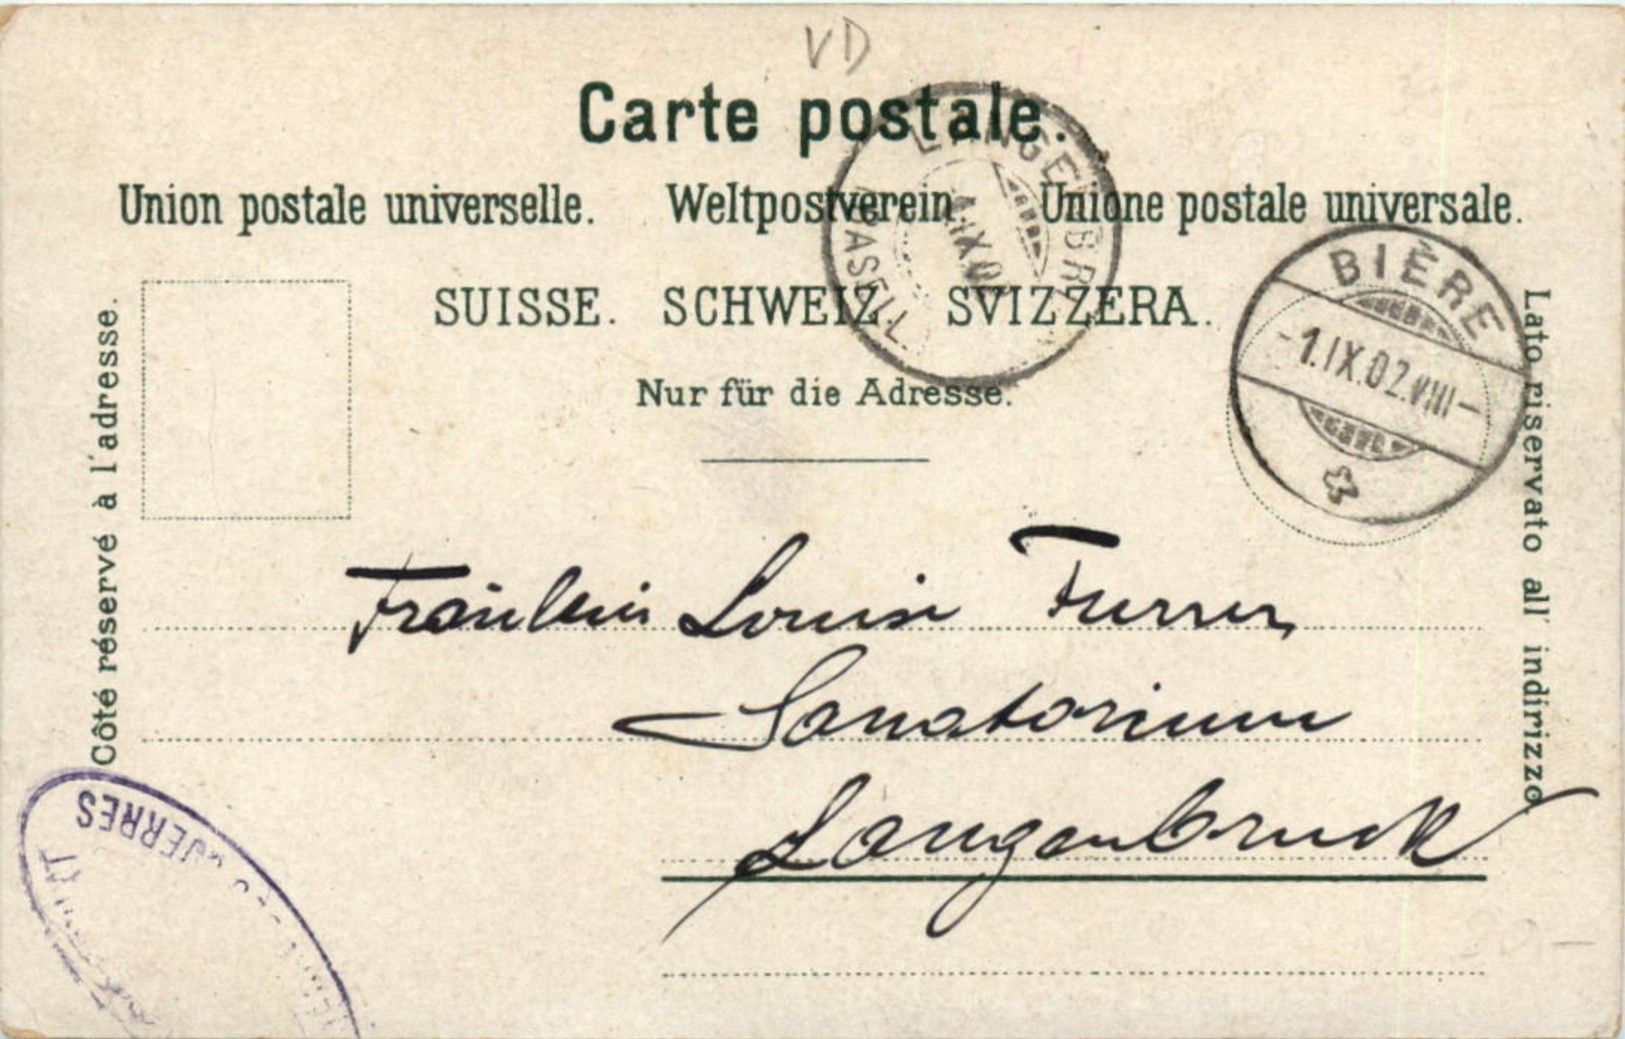 VD
Carte postale.
Union postale universelle. Weltpostverein. Unione postale universale.
SUISSE. SCHWEIZ. SVIZZERA.
Nur für die Adresse.
Côté réservé à l'adresse.
Lato riservato all' indirizzo.
BASELL.
IX.02
BIÈRE
-1.IX.02.VIII-
Fräulein Louise Furrer,
Sanatorium
Langenbruck